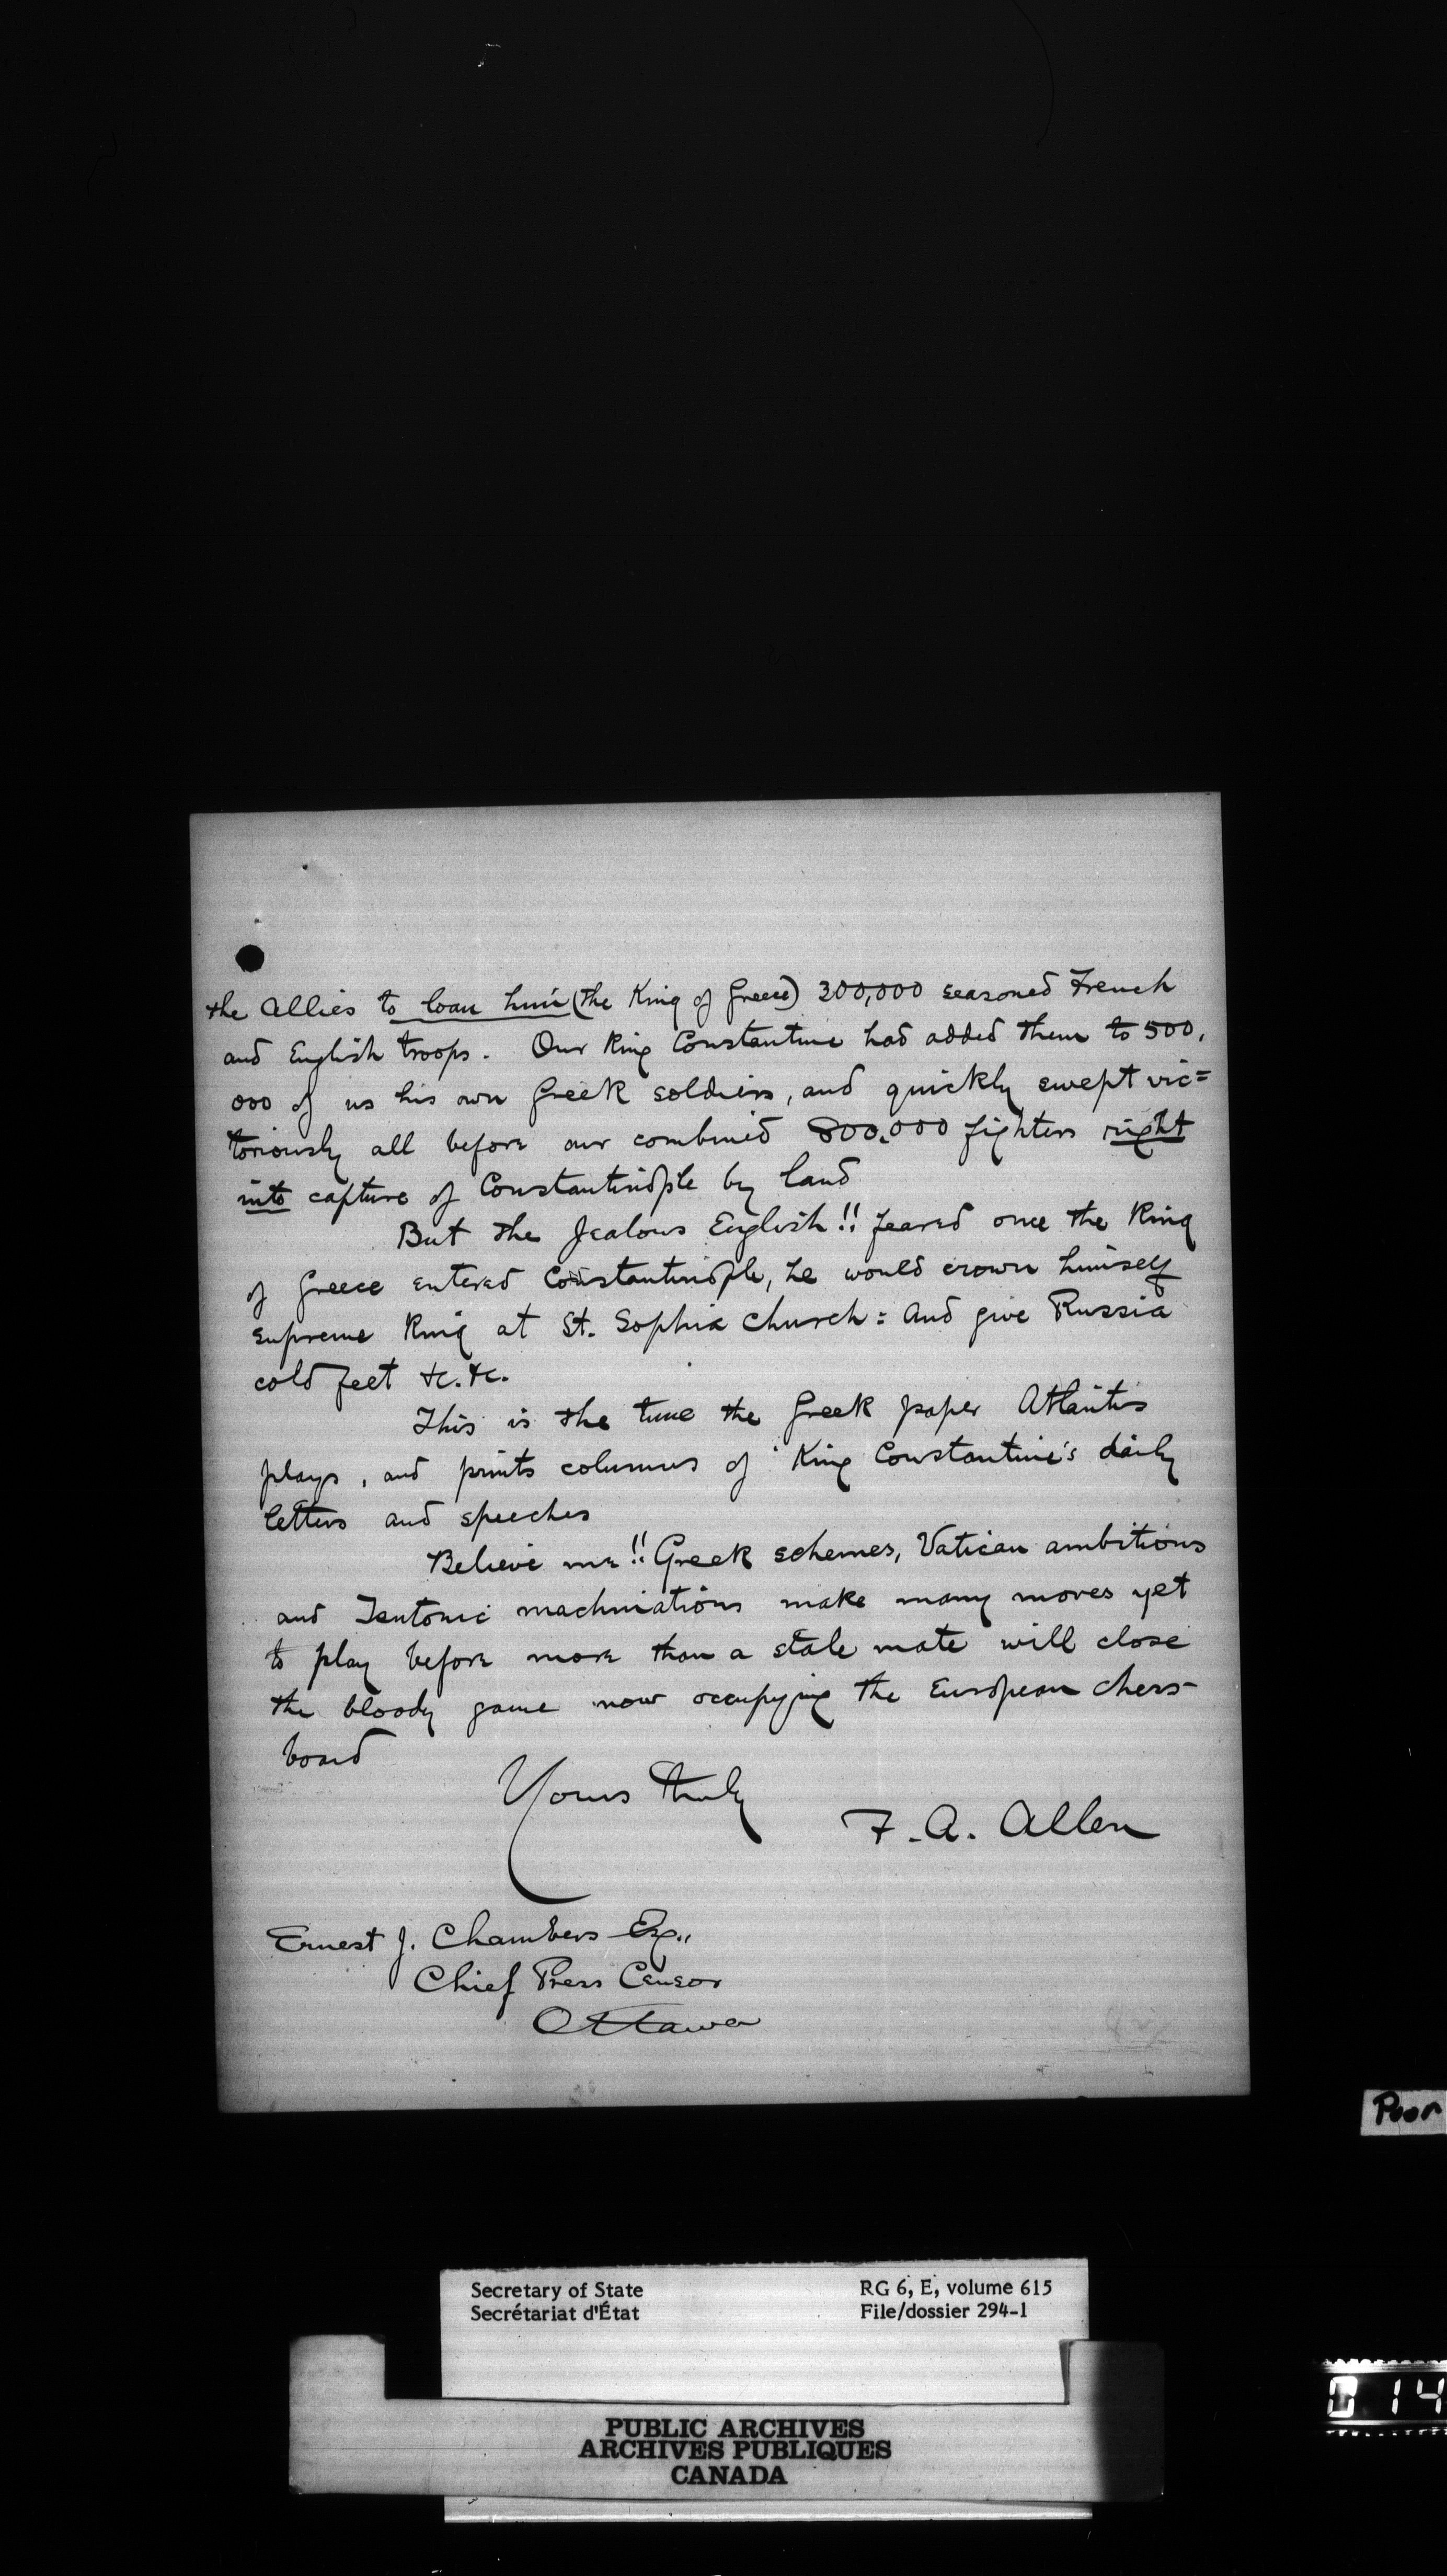 the Allies to loan him (the King of Greece) 300,000 seasoned French
and English troops. Our King Constantine had added them to 500,
000 of us his own Greek soldiers, and quickly swept vic=
toriously all before our combined 800,000 fighters right
into capture of Constantinople by land
But the Jealous English!! feared once the King
of Greece entered Constantinople, he would crown himself
supreme King at St. Sophia Church = And give Russia
cold feet &c. &c.
This is the tune the Greek paper Atlantis
plays, and prints columns of King Constantine's daily
letters and speeches
Believe me!! Greek schemes, Vatican ambitions
and Teutonic machinations make many moves yet
to play before more than a stale mate will close
the bloody game now occupying the European chess-
board
Yours truly
F. A. Allen
Ernest J. Chambers Esq.,
Chief Press Censor
Ottawa
Poor
Secretary of State
Secrétariat d'État
RG 6, E, volume 615
File/dossier 294-1
PUBLIC ARCHIVES
ARCHIVES PUBLIQUES
CANADA
14